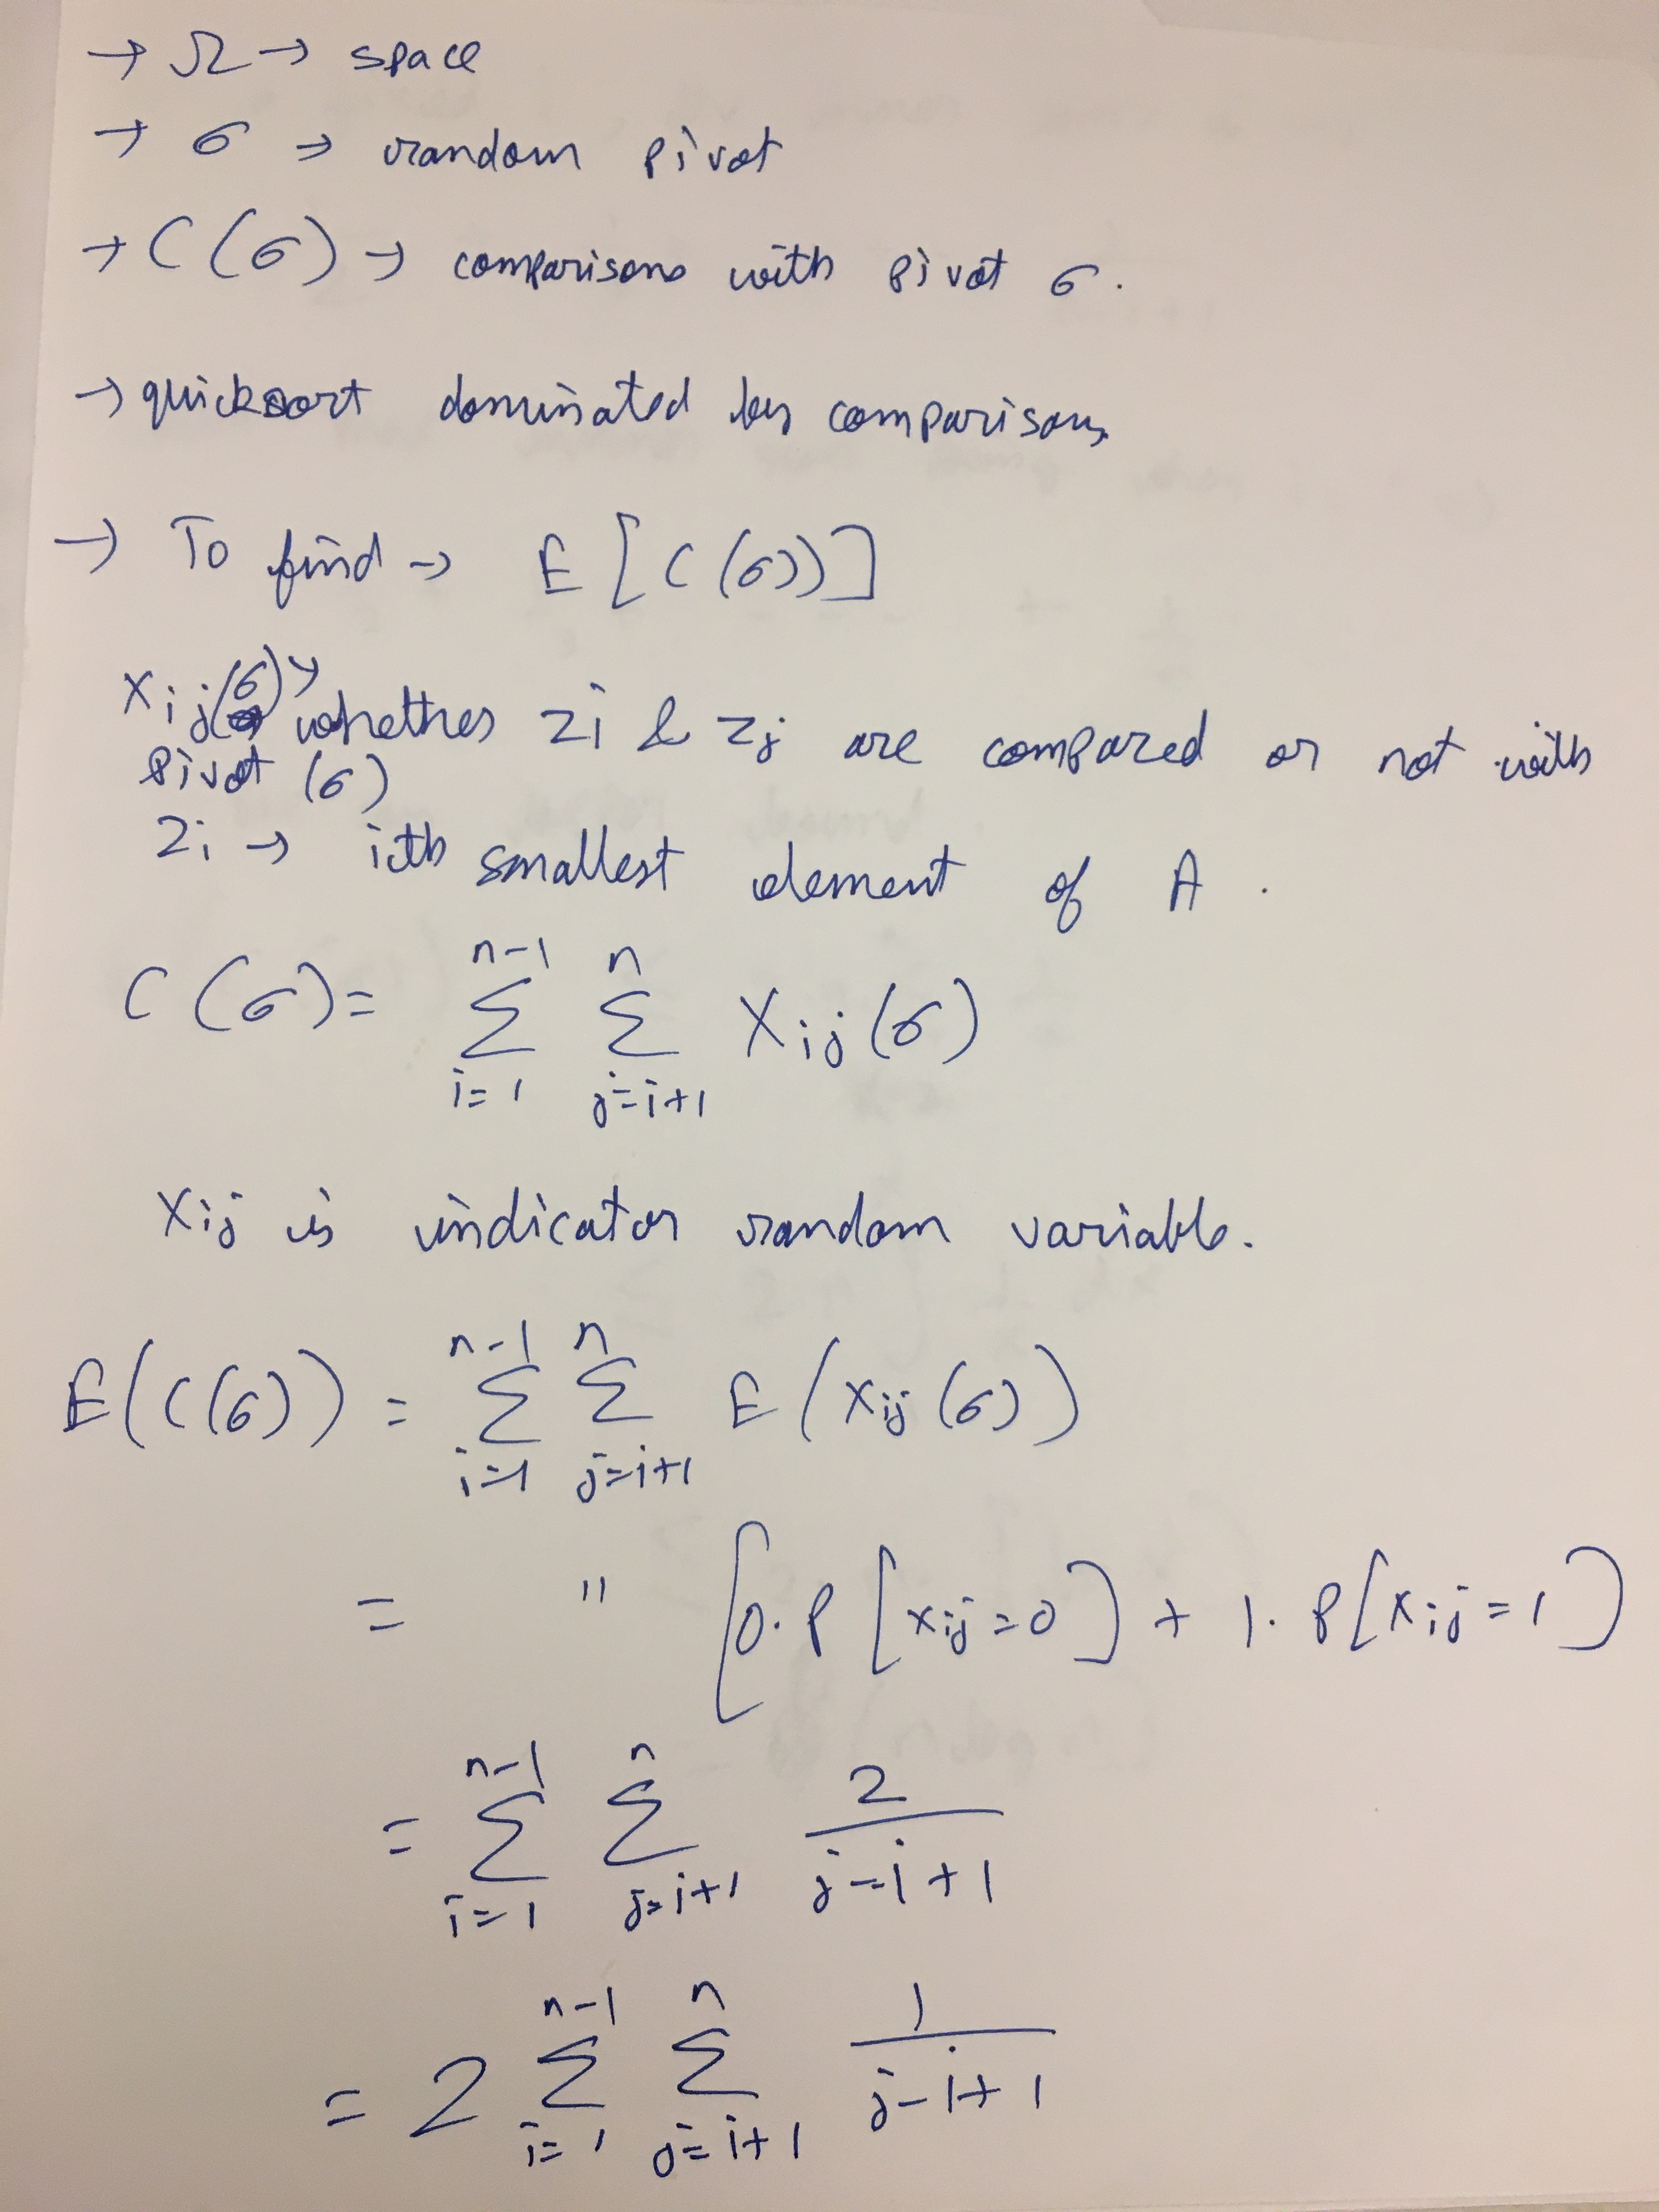 → Ω → space
→ σ → random pivot
→ C(σ) → comparisons with pivot σ.
→ quicksort dominated by comparisons
→ To find → E[C(σ)]
Xij(σ) → whether zi & zj are compared or not with
pivot (σ)
zi → ith smallest element of A.
C(σ) = Σ_{i=1}^{n-1} Σ_{j=i+1}^{n} Xij(σ)
Xij is indicator random variable.
E(C(σ)) = Σ_{i=1}^{n-1} Σ_{j=i+1}^{n} E(Xij(σ))
= " [0.P[xij=0] + 1.P[xij=1]
= Σ_{i=1}^{n-1} Σ_{j=i+1}^{n} 2/(j-i+1)
= 2 Σ_{i=1}^{n-1} Σ_{j=i+1}^{n} 1/(j-i+1)